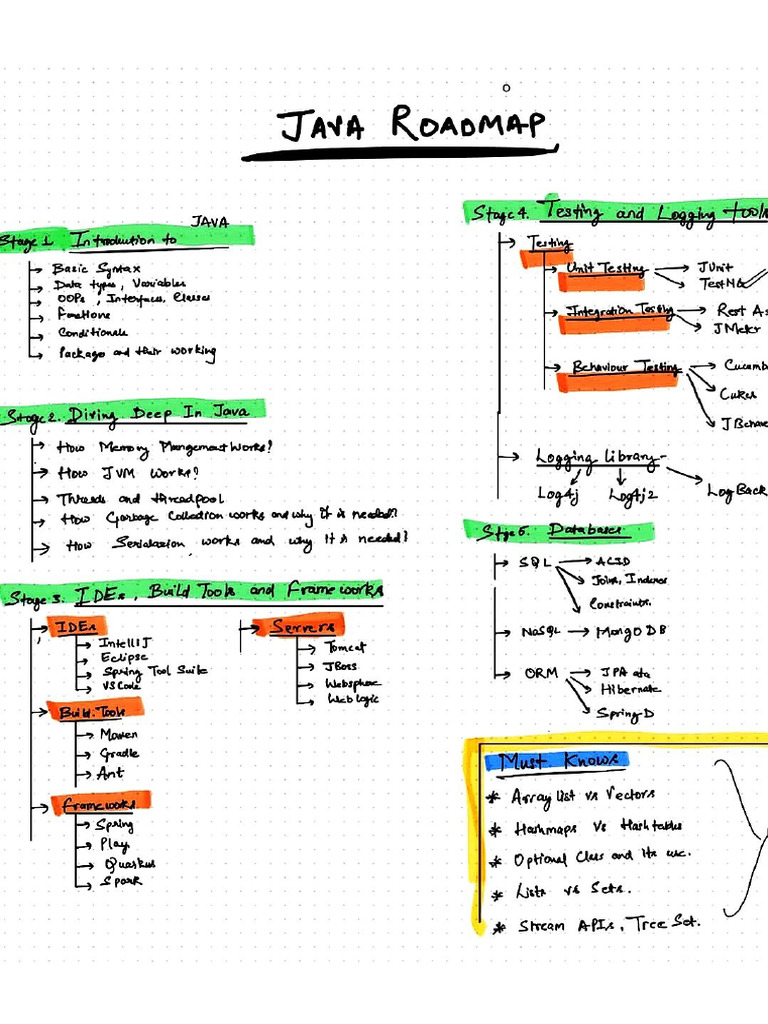 JAVA ROADMAP
JAVA
Stage 1 Introduction to
Basic Syntax
Data types, Variables
OOPs, Interfaces, Classes
Functions
Conditionals
Package and their working
Stage 2. Diving Deep In Java
How Memory Management Works?
How JVM Works?
Threads and threadpool
How Garbage Collection works and why it is needed?
How Serialazion works and why it is needed?
Stage 3. IDEs, Build Tools and Frameworks
IDEs
IntelliJ
Eclipse
Spring Tool Suite
VS Code
Servers
Tomcat
JBoss
Websphere
Weblogic
Build Tools
Maven
Gradle
Ant
Frameworks
Spring
Play
Quarkus
Spark
Stage 4. Testing and Logging tools
Testing
Unit Testing
JUnit
TestNG
Integration Testing
Rest As
JMeter
Behaviour Testing
Cucumb
Cukes
JBehave
Logging library
Log4j
Log4j2
LogBack
Stage 5. Databases
SQL
ACID
Joins, Indexes
Constraints.
NoSQL
MONGO DB
ORM
JPA ata
Hibernate
Spring-D
Must Knows
* Array list vs Vectors
* Hashmaps vs Hashtables
* Optional Class and its use.
* Lists vs Sets.
* Stream APIs, Tree Set.